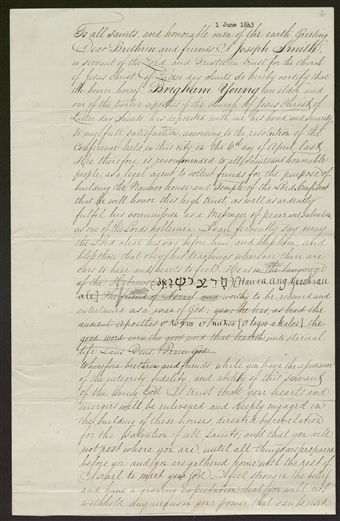 1 June 1843
To all saints, and honorable men of the earth, Greeting
Dear Brethren and friends, I Joseph Smith,
a servant of the Lord and Trustee in trust for the church
of Jesus Christ of Latter day Saints do hereby certify that
the bearer hereof Brigham Young an elder and
one of the twelve apostles of the church of Jesus Christ of
Latter day Saints has deposited with me his bond and security
to my full satisfaction, according to the resolution of the
Conference held in this city on the 6th day of April last
He therefore is recommended to all saints and honorable
people, as a legal agent to collect funds for the purpose of
building the Nauvoo house and Temple of the Lord. Confident
that he will honor this high trust, as well as ardently
fulfil his commission as a messenger of peace and salvation
as one of the Lord's noblemen, I can fervently say may
the Lord clear his way before him, and bless him, and
bless those that obey his teachings, wherever there are
ears to hear and hearts to feel. He is in the language
of the Hebrews
the friend of Israel and worthy to be received and
entertained as a man of God; yea, he has, as had the
ancient apostles the
good word that leadeth unto eternal
life.
Wherefore brethren and friends, while you have the assurance
of the integrity, fidelity, and ability of this servant
of the living God, I trust that your hearts and
energies will be enlivened and deeply engaged in
the building of these houses directed by revelation
for the salvation of all saints, and that you will
not rest where you are, until all things are prepared
before you and you are gathered home with the rest of
Israel to meet your God. I feel strong in the belief
and have a growing expectation that you will not
withhold any means in your power that can be used